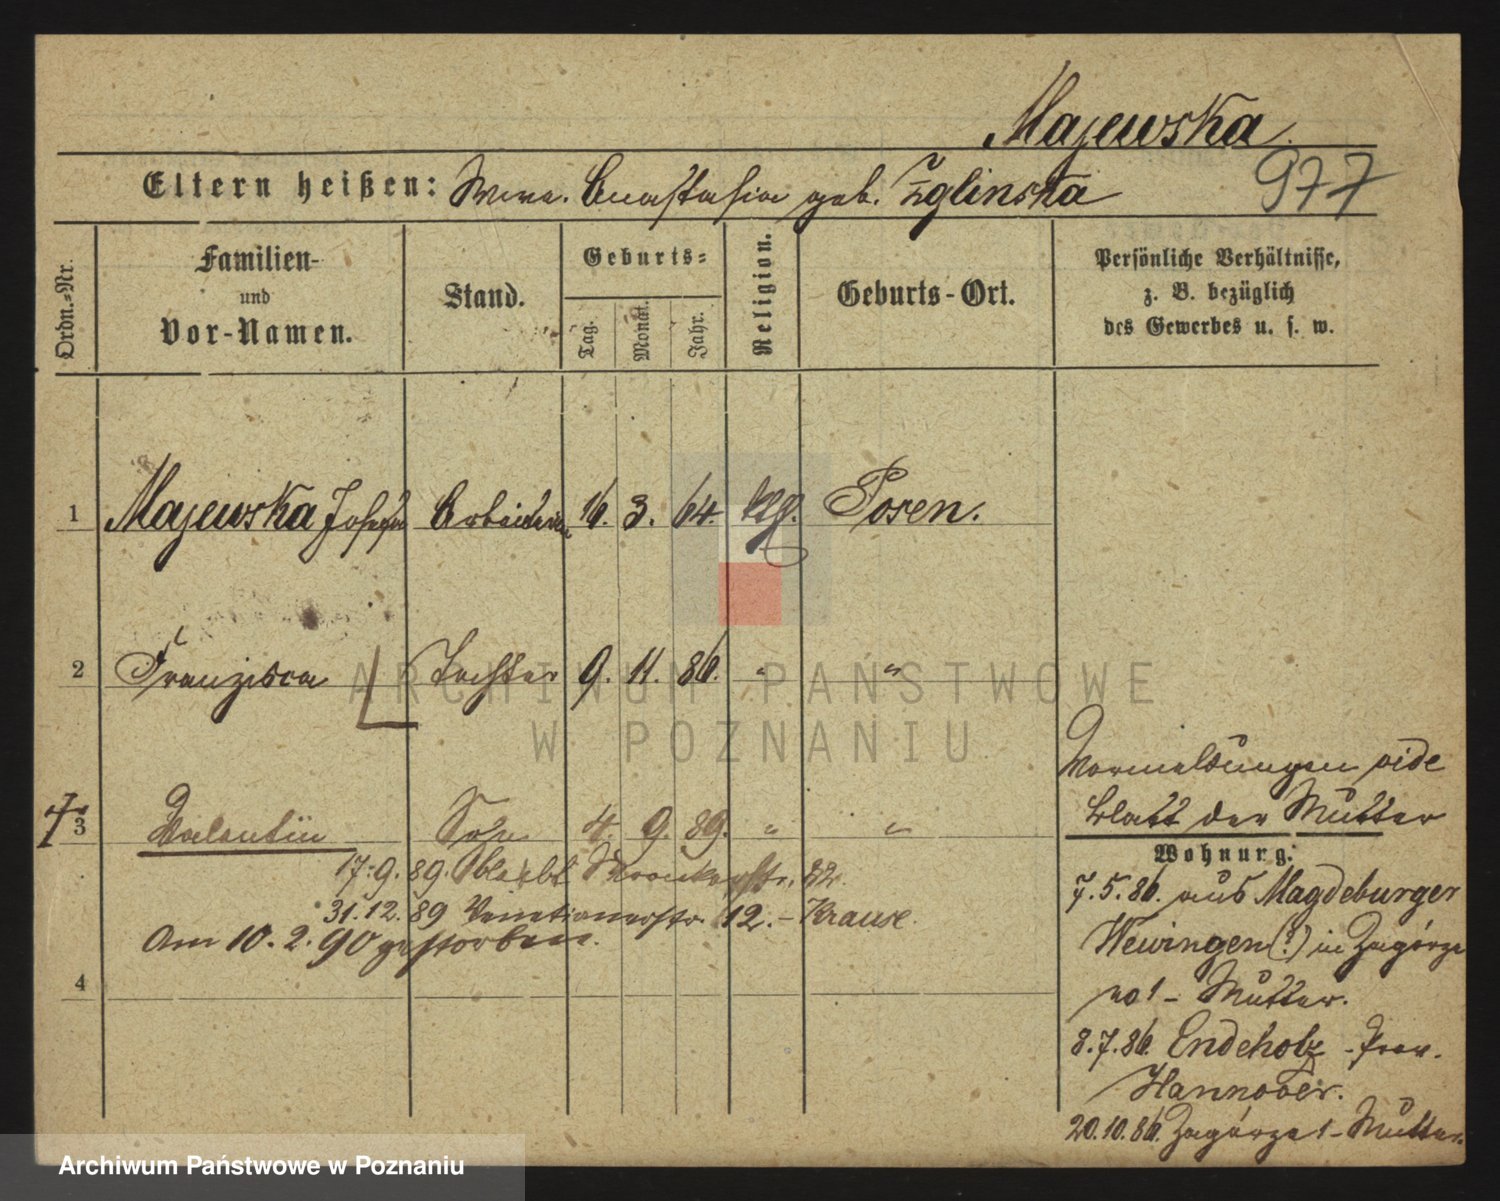 Majewska.
Eltern heißen: Wwe. Anastasia geb. Żglinska
977
Ordn.-Nr.
Familien-
und
Vor-Namen.
Stand.
Geburts-
Tag.
Monat.
Jahr.
Religion.
Geburts-Ort.
Persönliche Verhältnisse,
z. B. bezüglich
des Gewerbes u. s. w.
1 Majewska Josefa Arbeiterin 16. 3. 64. klg. Posen.
2 Franzisca Tochter 9. 11. 86. " "
3 Valentin Sohn 4. 9. 89. " "
17.9.89. Bleibt 32.
31.12.89 Venetianerstr. 12. - Krause.
Am 10.2.90 gestorben.
4
Vormeldungen vide
Blatt der Mutter
Wohnung.
7.5.86. aus Magdeburger
Wewingen (?) in Zagórze
no 1 - Mutter.
8.7.86. Endeholz - Prov.
Hannover.
20.10.86. Zagórze 1 - Mutter.
ARCHIWUM PAŃSTWOWE
W POZNANIU
Archiwum Państwowe w Poznaniu